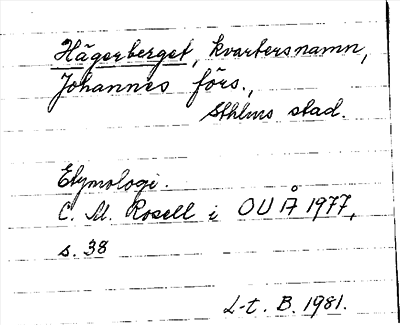 Hägerberget, kvartersnamn,
Johannes förs.,
Sthlms stad.
Etymologi.
C. M. Rosell i OUÅ 1977,
s. 38
L-t. B. 1981.